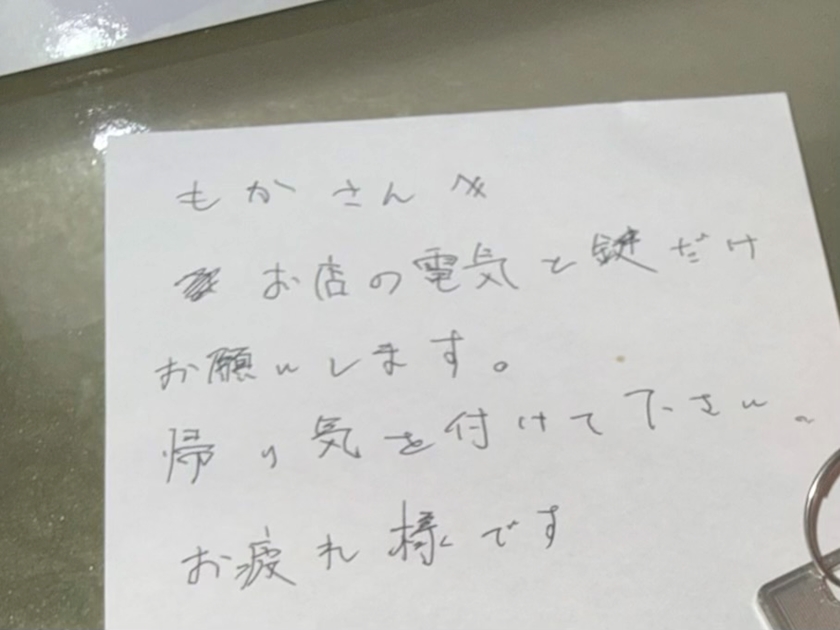 もかさんへ
お店の電気と鍵だけ
お願いします。
帰り気を付けて下さい。
お疲れ様です